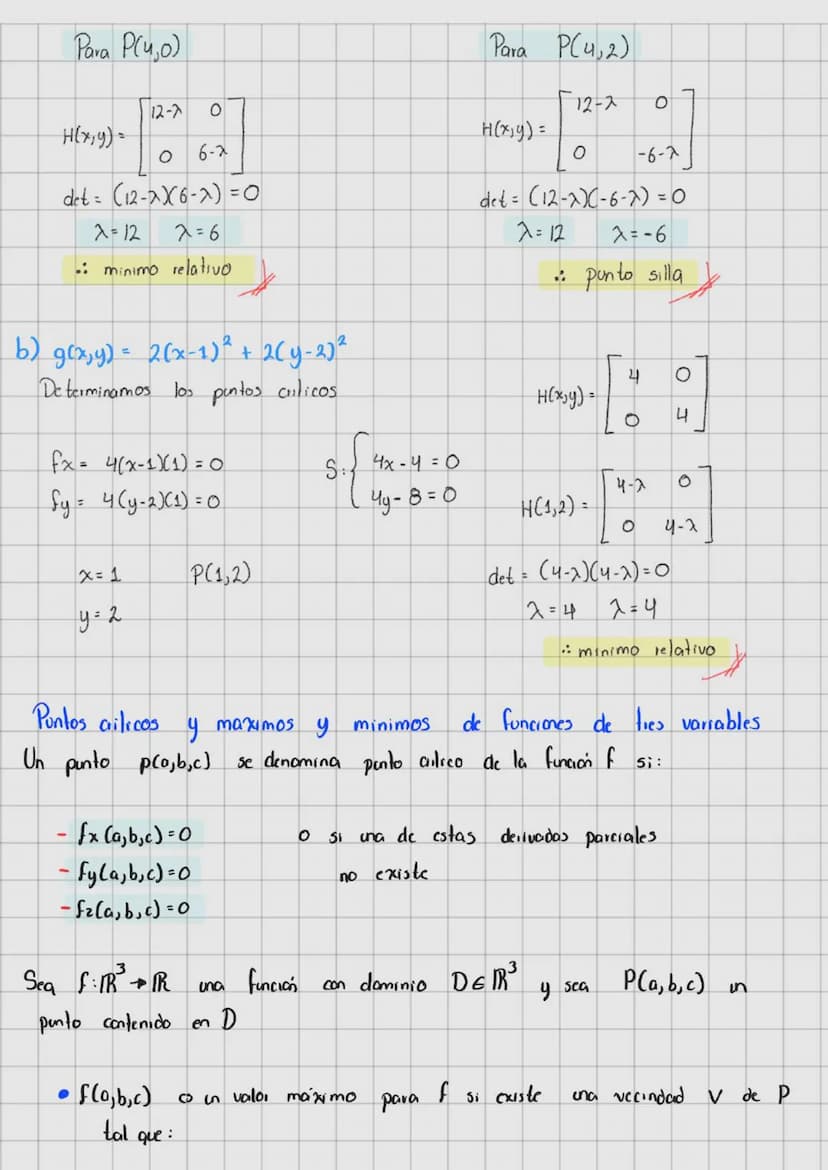 Para P(4,0)
H(x,y) = [12-λ 0
0 6-λ]
det = (12-λ)(6-λ) = 0
λ = 12 λ = 6
∴ minimo relativo
Para P(4,2)
H(x,y) = [12-λ 0
0 -6-λ]
det = (12-λ)(-6-λ) = 0
λ = 12 λ = -6
∴ punto silla
b) g(x,y) = 2(x-1)² + 2(y-2)²
Determinamos los puntos criticos
fx = 4(x-1)(1) = 0
fy = 4(y-2)(1) = 0
S: { 4x-4 = 0
4y-8 = 0
x = 1 P(1,2)
y = 2
H(x,y) = [4 0
0 4]
H(1,2) = [4-λ 0
0 4-λ]
det = (4-λ)(4-λ) = 0
λ = 4 λ = 4
∴ minimo relativo
Puntos criticos y maximos y minimos de funciones de tres variables
Un punto p(a,b,c) se denomina punto critico de la función f si:
- fx(a,b,c) = 0 o si una de estas derivadas parciales
- fy(a,b,c) = 0 no existe
- fz(a,b,c) = 0
Sea f: ℝ³ → ℝ una función con dominio D ∈ ℝ³ y sea P(a,b,c) un
punto contenido en D
• f(a,b,c) es un valor máximo para f si existe una vecindad V de P
tal que: